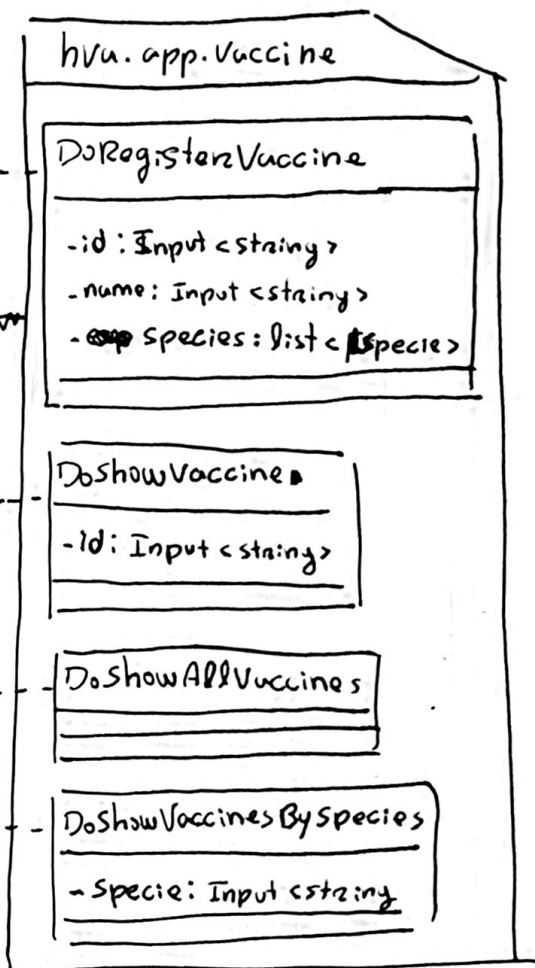 hva.app.vaccine
DoRegisterVaccine
-id: Input <string>
-name: Input <string>
- species: list < specie>
DoShowVaccine
-id: Input <string>
DoShowAllVaccines
DoShowVaccinesBySpecies
- specie: Input <string